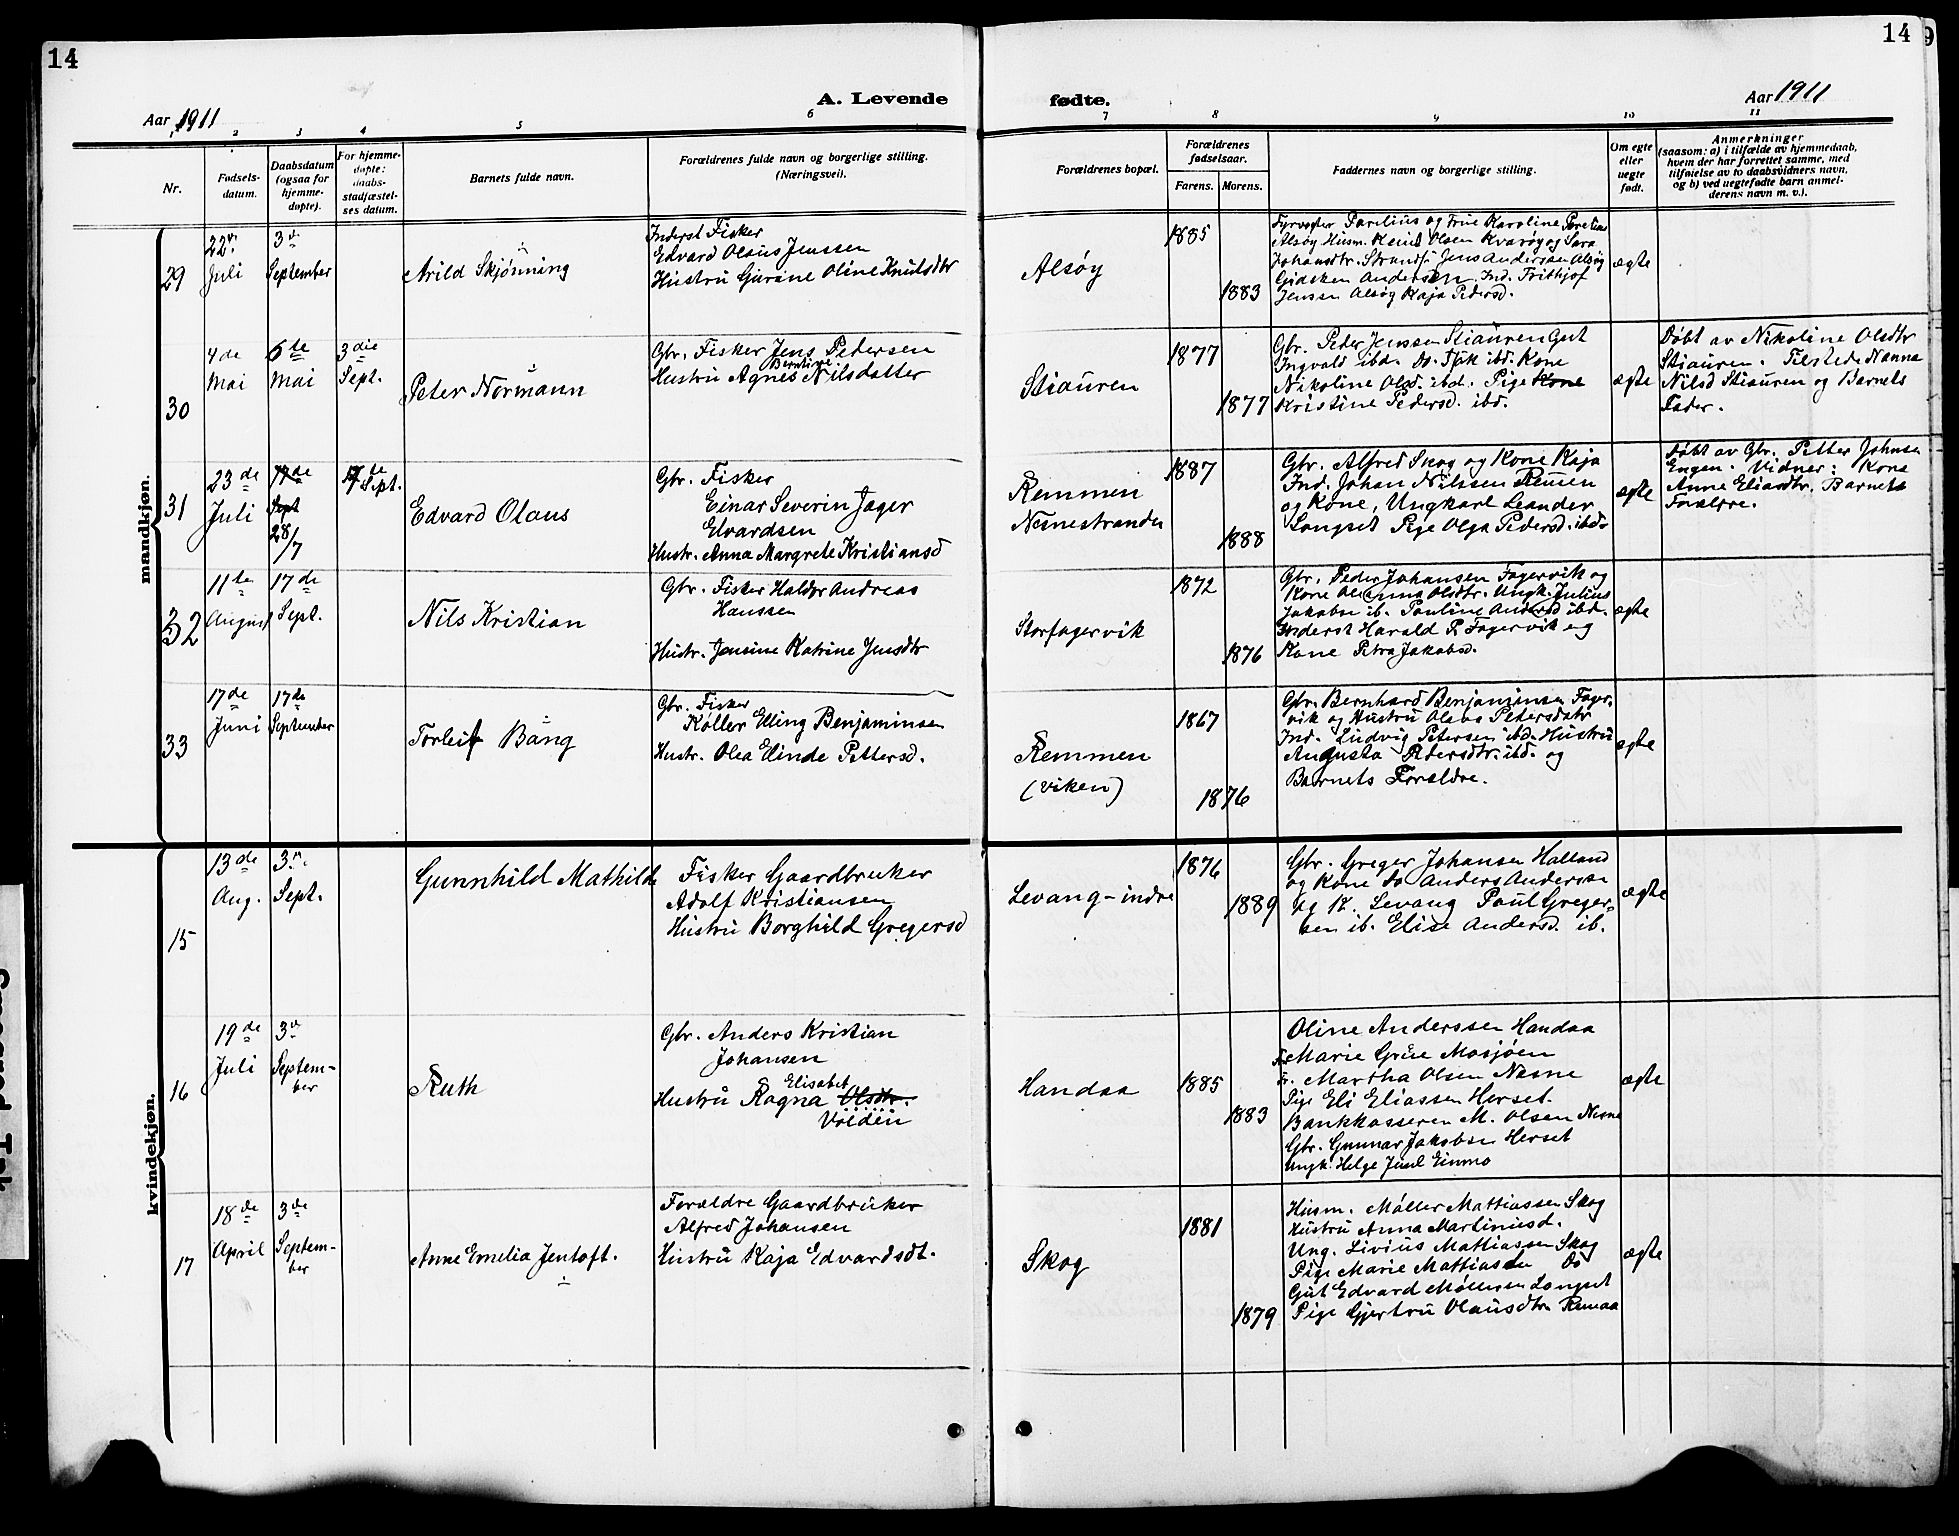 14
14
A. Levende fødte.
Aar 1911
Aar 1911
1 2 3 4 5 6 7 8 9 10 11
Nr.
Fødsels-
datum.
Daabsdatum
(ogsaa for
hjemme-
døpte).
For hjemme-
døpte:
daabs-
stadfæstel-
ses datum.
Barnets fulde navn.
Forældrenes fulde navn og borgerlige stilling.
(Næringsvei).
Forældrenes bopæl.
Forældrenes
fødselsaar.
Farens. Morens.
Faddernes navn og borgerlige stilling.
Om egte
eller
uegte
født.
Anmerkninger
(saasom: a) i tilfælde av hjemmedaab,
hvem der har forrettet samme, med
tilføielse av to daabsvidners navn,
og b) ved uegtefødte barn anmel-
derens navn m. v.).
mandkjøn.
29
22
Juli
3
September
Arild Skjønning
Inderst Fisker
Edvard Olaus Jenssen
Hustru Gurine Oline Knutsdtr
Alsøy
1885
1883
Fyrvogter Parelius og Frue Karoline Parelius
Alsøy Husm. Knut Olsen Kvarøy og Sara
Johansdtr. Strand Jens Anderssen Alsøy
Gidsken Andersen Ind. Frithjof
Jenssen Alsøy Kaja Pedersd.
ægte
30
4 de
Mai
6 te
Mai
3 die
Sept.
Peter Normann
Gbr. Fisker Jens Petersen
Berntine
Hustru Agnes Nilsdatter
Stiauren
1877
1877
Gbr. Peder Jenssen Stiauren Gut
Ingvald ibd. do. ibd. Kone
Nikoline Olsd. ibd. Pige Kone
Kristine Pedersd. ibd.
ægte
Døbt av Nikoline Olsdtr
Stiauren. Tilstede Nanna
Nilsd Stiauren og Barnets
Fader.
31
23 de
Juli
17 de
Sept
28/7
17 de
Sept.
Edvard Olaus
Gbr. Fisker
Einar Severin Jager
Edvardsen
Hustr. Anna Margrete Kristiansd
Remmen
Nesnestranden
1887
1888
Gbr. Alfred Skog og Kone Kaja
Ind. Johan Nilsen Remen
og Kone, Ungkarl Leander
Langset Pige Olga Pedersd. ibd.
ægte
Døbt av Gbr. Petter Johnsen
Engen. Vidner: Kone
Anne Eliasdtr. Barnets
Forældre.
32
11 te
August
17 de
Sept.
Nils Kristian
Gbr. Fisker Haldor Andreas
Hanssen
Hustr. Jensine Katrine Jensdtr
Storfagervik
1872
1876
Gbr. Peder Johansen Fagervik og
Kone Oleanna Olsdtr. Ungk. Julius
Jakobsen ib. Pauline Andersd ibd.
Inderst Harald P. Fagervik og
Kone Petra Jakobsd.
ægte
33
17 de
Juni
17 de
September
Torleif Bang
Gbr. Fisker
Køller Elling Benjaminsen
Hustr. Olea Elinde Pettersd.
Remmen
(viken)
1867
1876
Gbr. Bernhard Benjaminsen Fager-
vik og Hustru Olava Petersdatr
Ind. Ludvig Petersen ibd. Hustru
Augusta Pedersdtr. ibd. og
Barnets Forældre.
ægte
kvindekjøn.
15
13 de
Aug.
3
Sept.
Gunnhild Mathilde
Fisker Gaardbruker
Adolf Kristiansen
Hustru Borghild Gregersd
Levang-indre
1876
1889
Gbr. Greger Johansen Halland
og Kone do Anders Andersen
og K. Levang Paul Greger-
sen ib. Elise Andersd ib.
ægte
16
19 de
Juli
3
Septem-
ber
Ruth
Gbr. Anders Kristian
Johansen
Elisabet
Hustru Ragna Olsdtr.
Volden
Handaa
1885
1883
Oline Anderssen Handaa
Fr. Marie Grue Mosjøen
Fr. Martha Olsen Nesne
Pige Eli Eliassen Herset
Bankkasseren M. Olsen Nesne
Gbr. Gunnar Jakobsen Herset
Ungk. Helge Juul Einmo
ægte
17
18 de
April
3 de
Septem-
ber
Anne Emelia Jentoft.
Forældre Gaardbruker
Alfred Johansen
Hustru Kaja Edvardsdt.
Skog
1881
1879
Husm. Møller Mattiassen Skog
Hustru Anna Martinusd.
Ung. Livius Mattiassen Skog
Pige Marie Mattiassen Do
Gut Edvard Møllersen Langset
Pige Gjertru Olausdtr Remaa
ægte